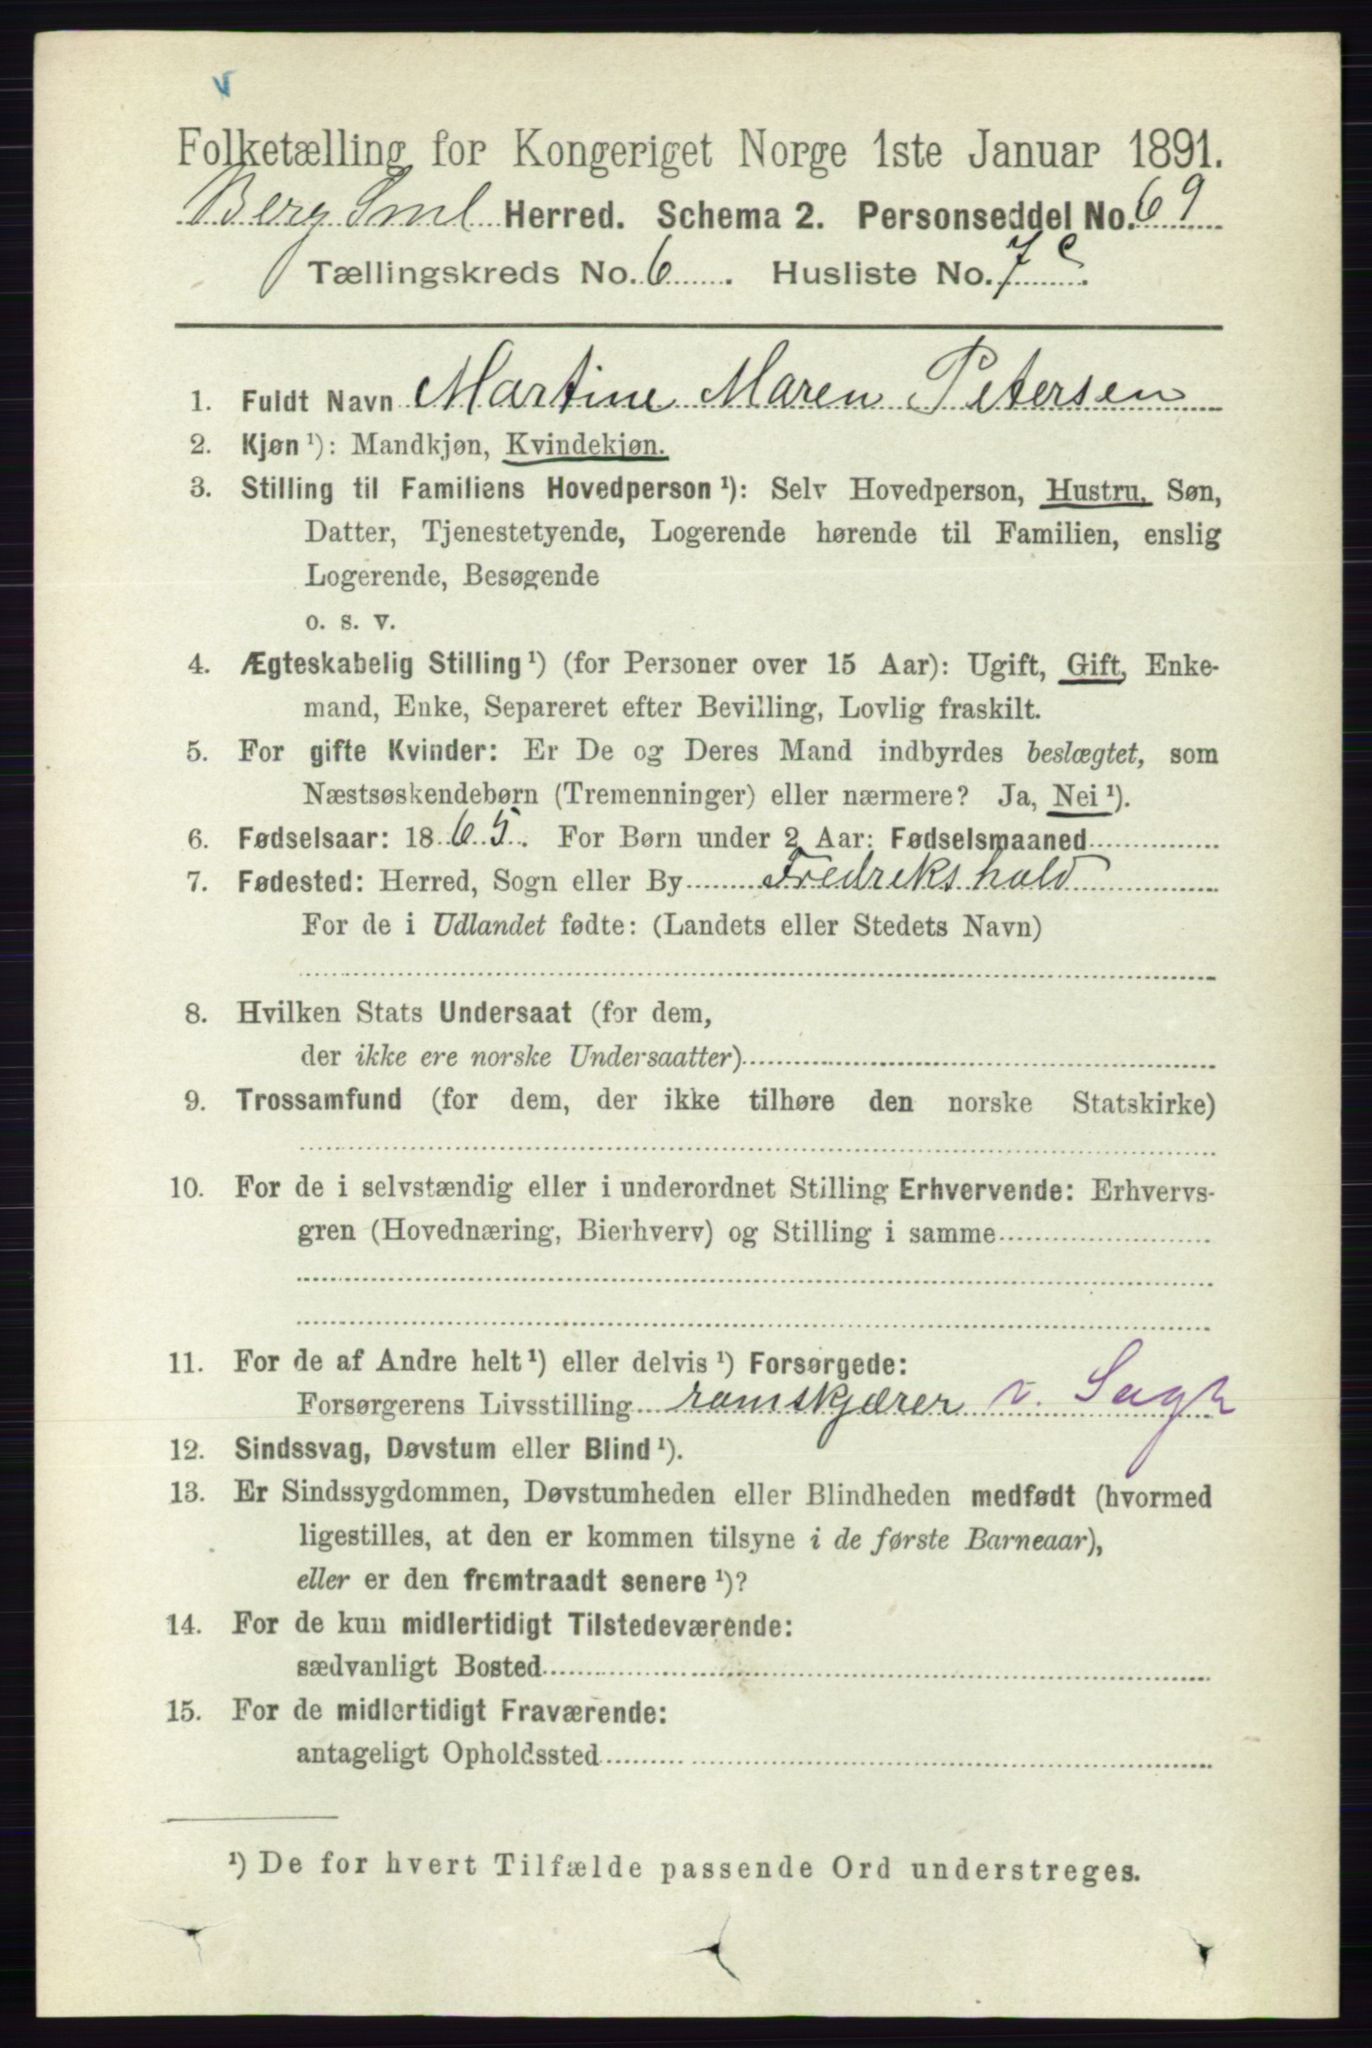 Folketælling for Kongeriget Norge 1ste Januar 1891.
Berg Sml Herred. Schema 2. Personseddel No. 69
Tællingskreds No. 6. Husliste No. 7c.
1. Fuldt Navn Martine Maren Petersen
2. Kjøn ¹): Mandkjøn, Kvindekjøn.
3. Stilling til Familiens Hovedperson ¹): Selv Hovedperson, Hustru, Søn,
Datter, Tjenestetyende, Logerende hørende til Familien, enslig
Logerende, Besøgende
o. s. v.
4. Ægteskabelig Stilling ¹) (for Personer over 15 Aar): Ugift, Gift, Enke-
mand, Enke, Separeret efter Bevilling, Lovlig fraskilt.
5. For gifte Kvinder: Er De og Deres Mand indbyrdes beslægtet, som
Næstsøskendebørn (Tremenninger) eller nærmere? Ja, Nei ¹).
6. Fødselsaar: 1865. For Børn under 2 Aar: Fødselsmaaned
7. Fødested: Herred, Sogn eller By Fredrekshald
For de i Udlandet fødte: (Landets eller Stedets Navn)
8. Hvilken Stats Undersaat (for dem,
der ikke ere norske Undersaatter)
9. Trossamfund (for dem, der ikke tilhøre den norske Statskirke)
10. For de i selvstændig eller i underordnet Stilling Erhvervende: Erhvervs-
gren (Hovednæring, Bierhverv) og Stilling i samme
11. For de af Andre helt ¹) eller delvis ¹) Forsørgede:
Forsørgerens Livsstilling ramskjærer v. Sagb
12. Sindssvag, Døvstum eller Blind ¹).
13. Er Sindssygdommen, Døvstumheden eller Blindheden medfødt (hvormed
ligestilles, at den er kommen tilsyne i de første Barneaar),
eller er den fremtraadt senere ¹)?
14. For de kun midlertidigt Tilstedeværende:
sædvanligt Bosted
15. For de midlertidigt Fraværende:
antageligt Opholdssted
¹) De for hvert Tilfælde passende Ord understreges.